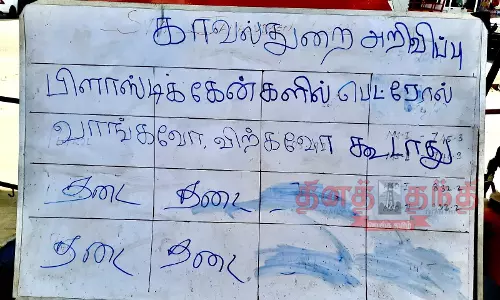 காவல்துறை அறிவிப்பு
பிளாஸ்டிக்கேன்களில் பெட்ரோல்
வாங்கவோ, விற்கவோ கூடாது
தடை தடை
தினத்தந்தி
தடை தடை